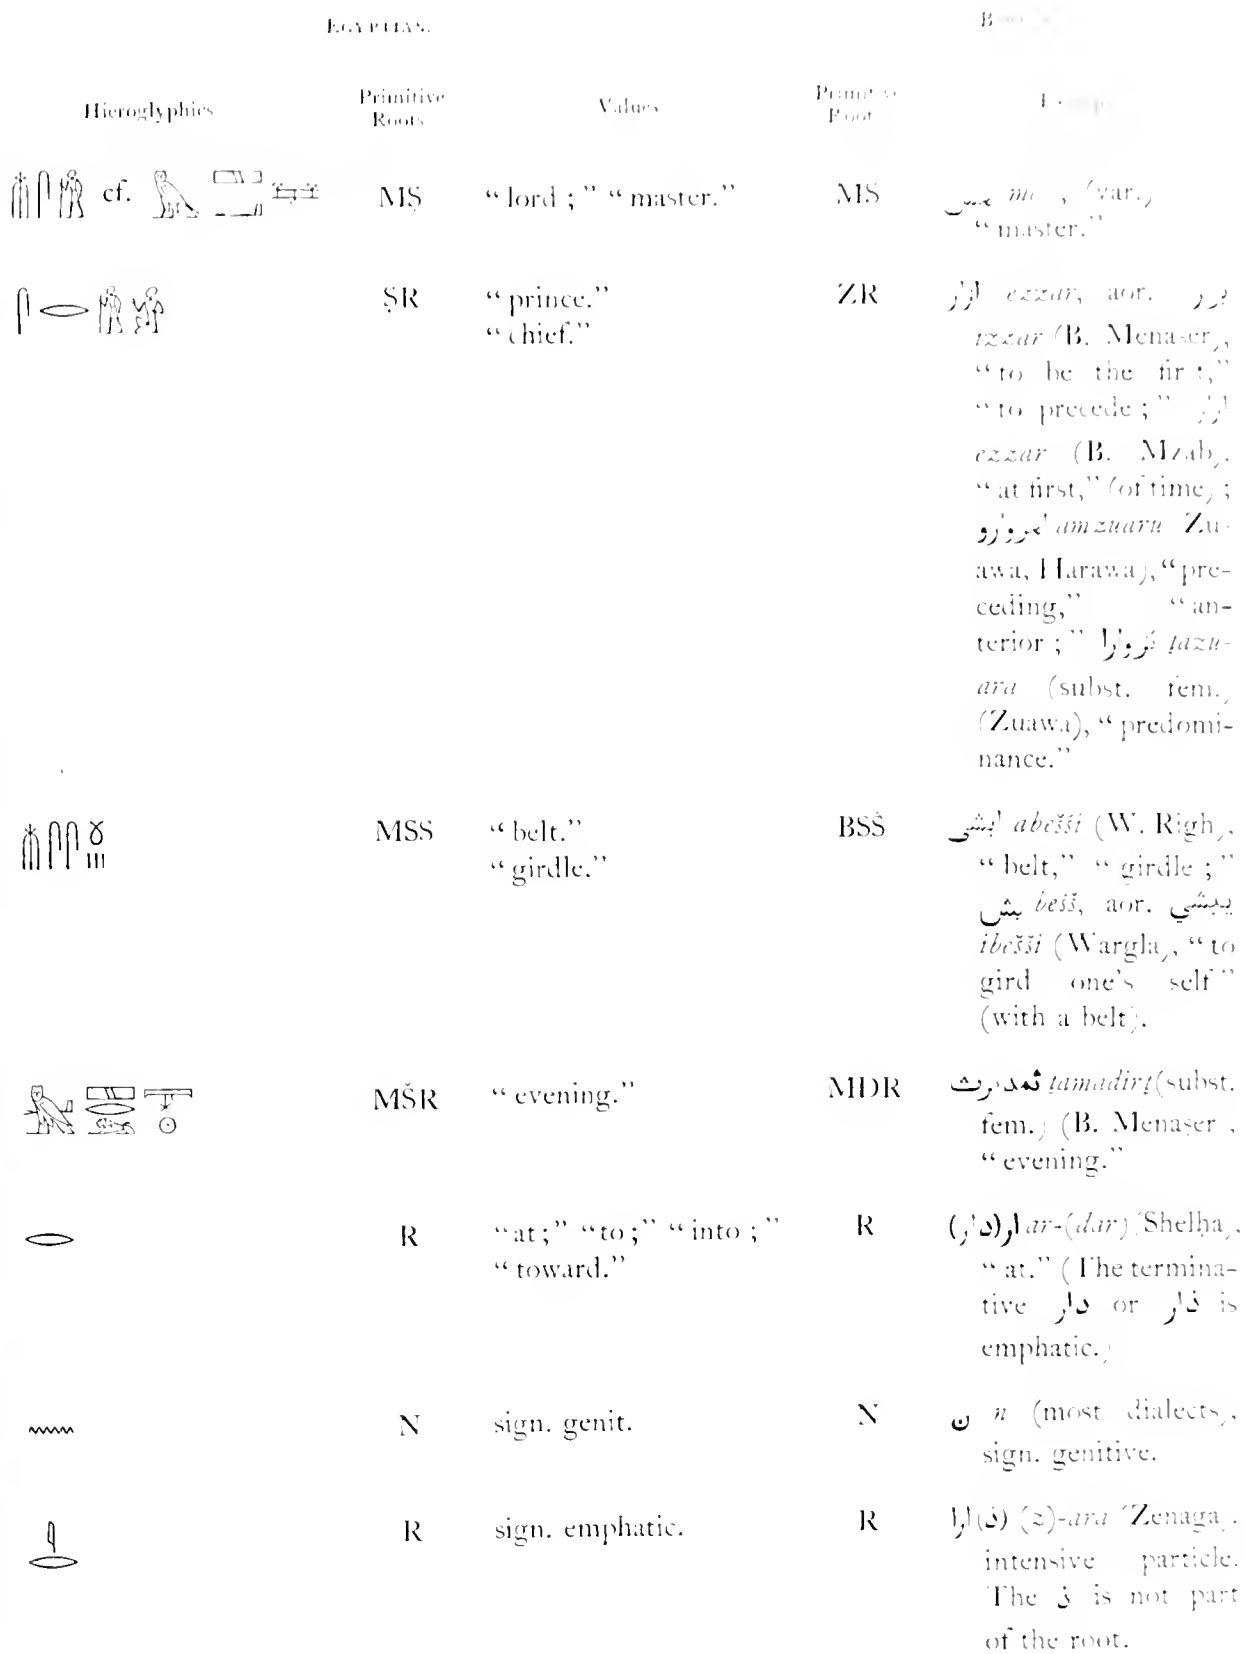 EGYPTIAN.
Hieroglyphics Primitive Roots Values Primitive Root
cf. MṢ “lord ;” “master.” MS (var.)
“master.”
ṢR “prince.” ZR ازار ezzar, aor.
“chief.” izzar (B. Menaṣer),
“to be the first,”
“to precede ;” ازار
ezzar (B. Mzab),
“at first,” (of time) ;
amzuaru Zu-
awa, Harawa), “pre-
ceding,” “an-
terior ;” ṭazu-
ara (subst. fem.)
(Zuawa), “predomi-
nance.”
MSS “belt.” BSŠ ابشى abešši (W. Righ),
“girdle.” “belt,” “girdle ;”
بش bešš, aor. يبشي
ibešši (Wargla), “to
gird one’s self”
(with a belt).
MŠR “evening.” MDR ثمديرث ṭamadirṭ (subst.
fem.) (B. Menaṣer),
“evening.”
R “at ;” “to ;” “into ;” R ار(دار) ar-(dar) (Shelḥa),
“toward.” “at.” (The termina-
tive دار or ذار is
emphatic.)
N sign. genit. N ن n (most dialects),
sign. genitive.
R sign. emphatic. R (ذ)ارا (z)-ara (Zenaga),
intensive particle.
The ذ is not part
of the root.